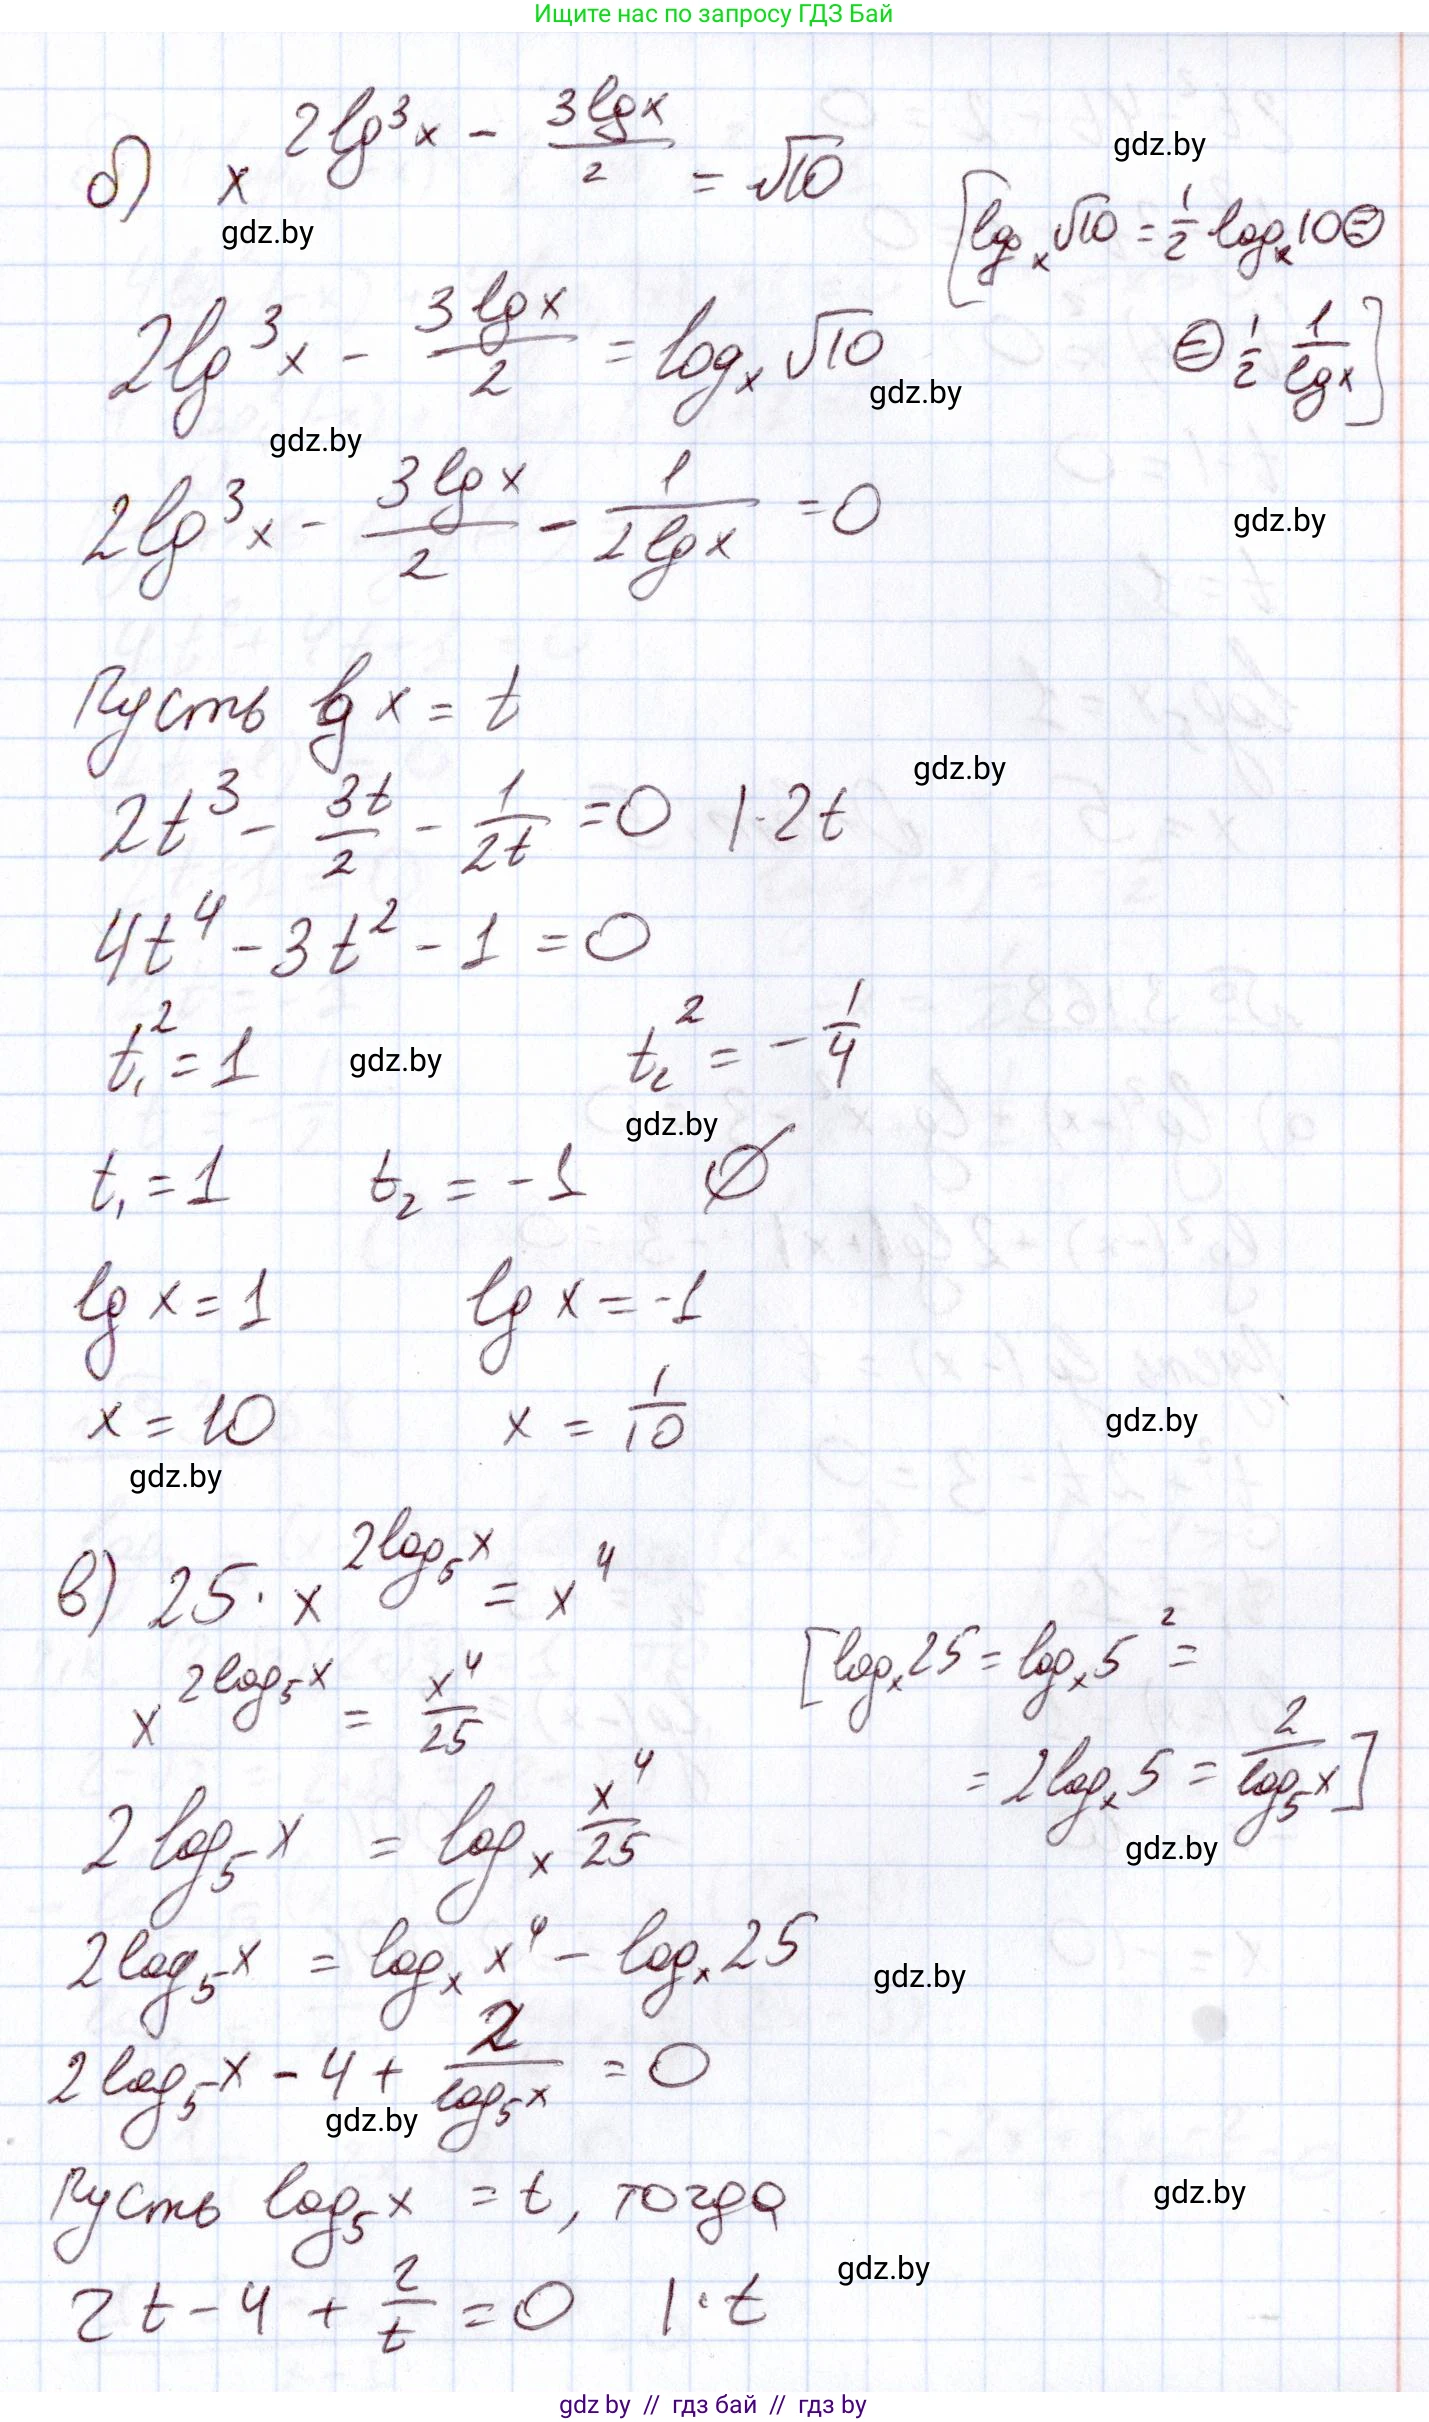 Ищите нас по запросу ГДЗ Бай
б) x^(2lg³x - 3lgx/2) = √10
gdz.by
gdz.by
[log_x √10 = 1/2 log_x 10 ⊜
⊜ 1/2 1/lgx]
2lg³x - 3lgx/2 = log_x √10
gdz.by
gdz.by
2lg³x - 3lgx/2 - 1/2lgx = 0
gdz.by
Пусть lg x = t
gdz.by
2t³ - 3t/2 - 1/2t = 0 |·2t
4t⁴ - 3t² - 1 = 0
t₁² = 1 t₂² = -1/4
gdz.by
gdz.by
t₁ = 1 t₂ = -1 ∅
lg x = 1 lg x = -1
x = 10 x = 1/10
gdz.by
gdz.by
в) 25·x^(2log₅x) = x⁴
x^(2log₅x) = x⁴/25
[log_x 25 = log_x 5² =
= 2log_x 5 = 2/log₅x]
gdz.by
2 log₅x = log_x x⁴/25
2log₅x = log_x x⁴ - log_x 25
gdz.by
2log₅x - 4 + 2/log₅x = 0
gdz.by
Пусть log₅x = t, тогда
gdz.by
gdz.by
2t - 4 + 2/t = 0 |·t
gdz by // гдз бай // гдз by